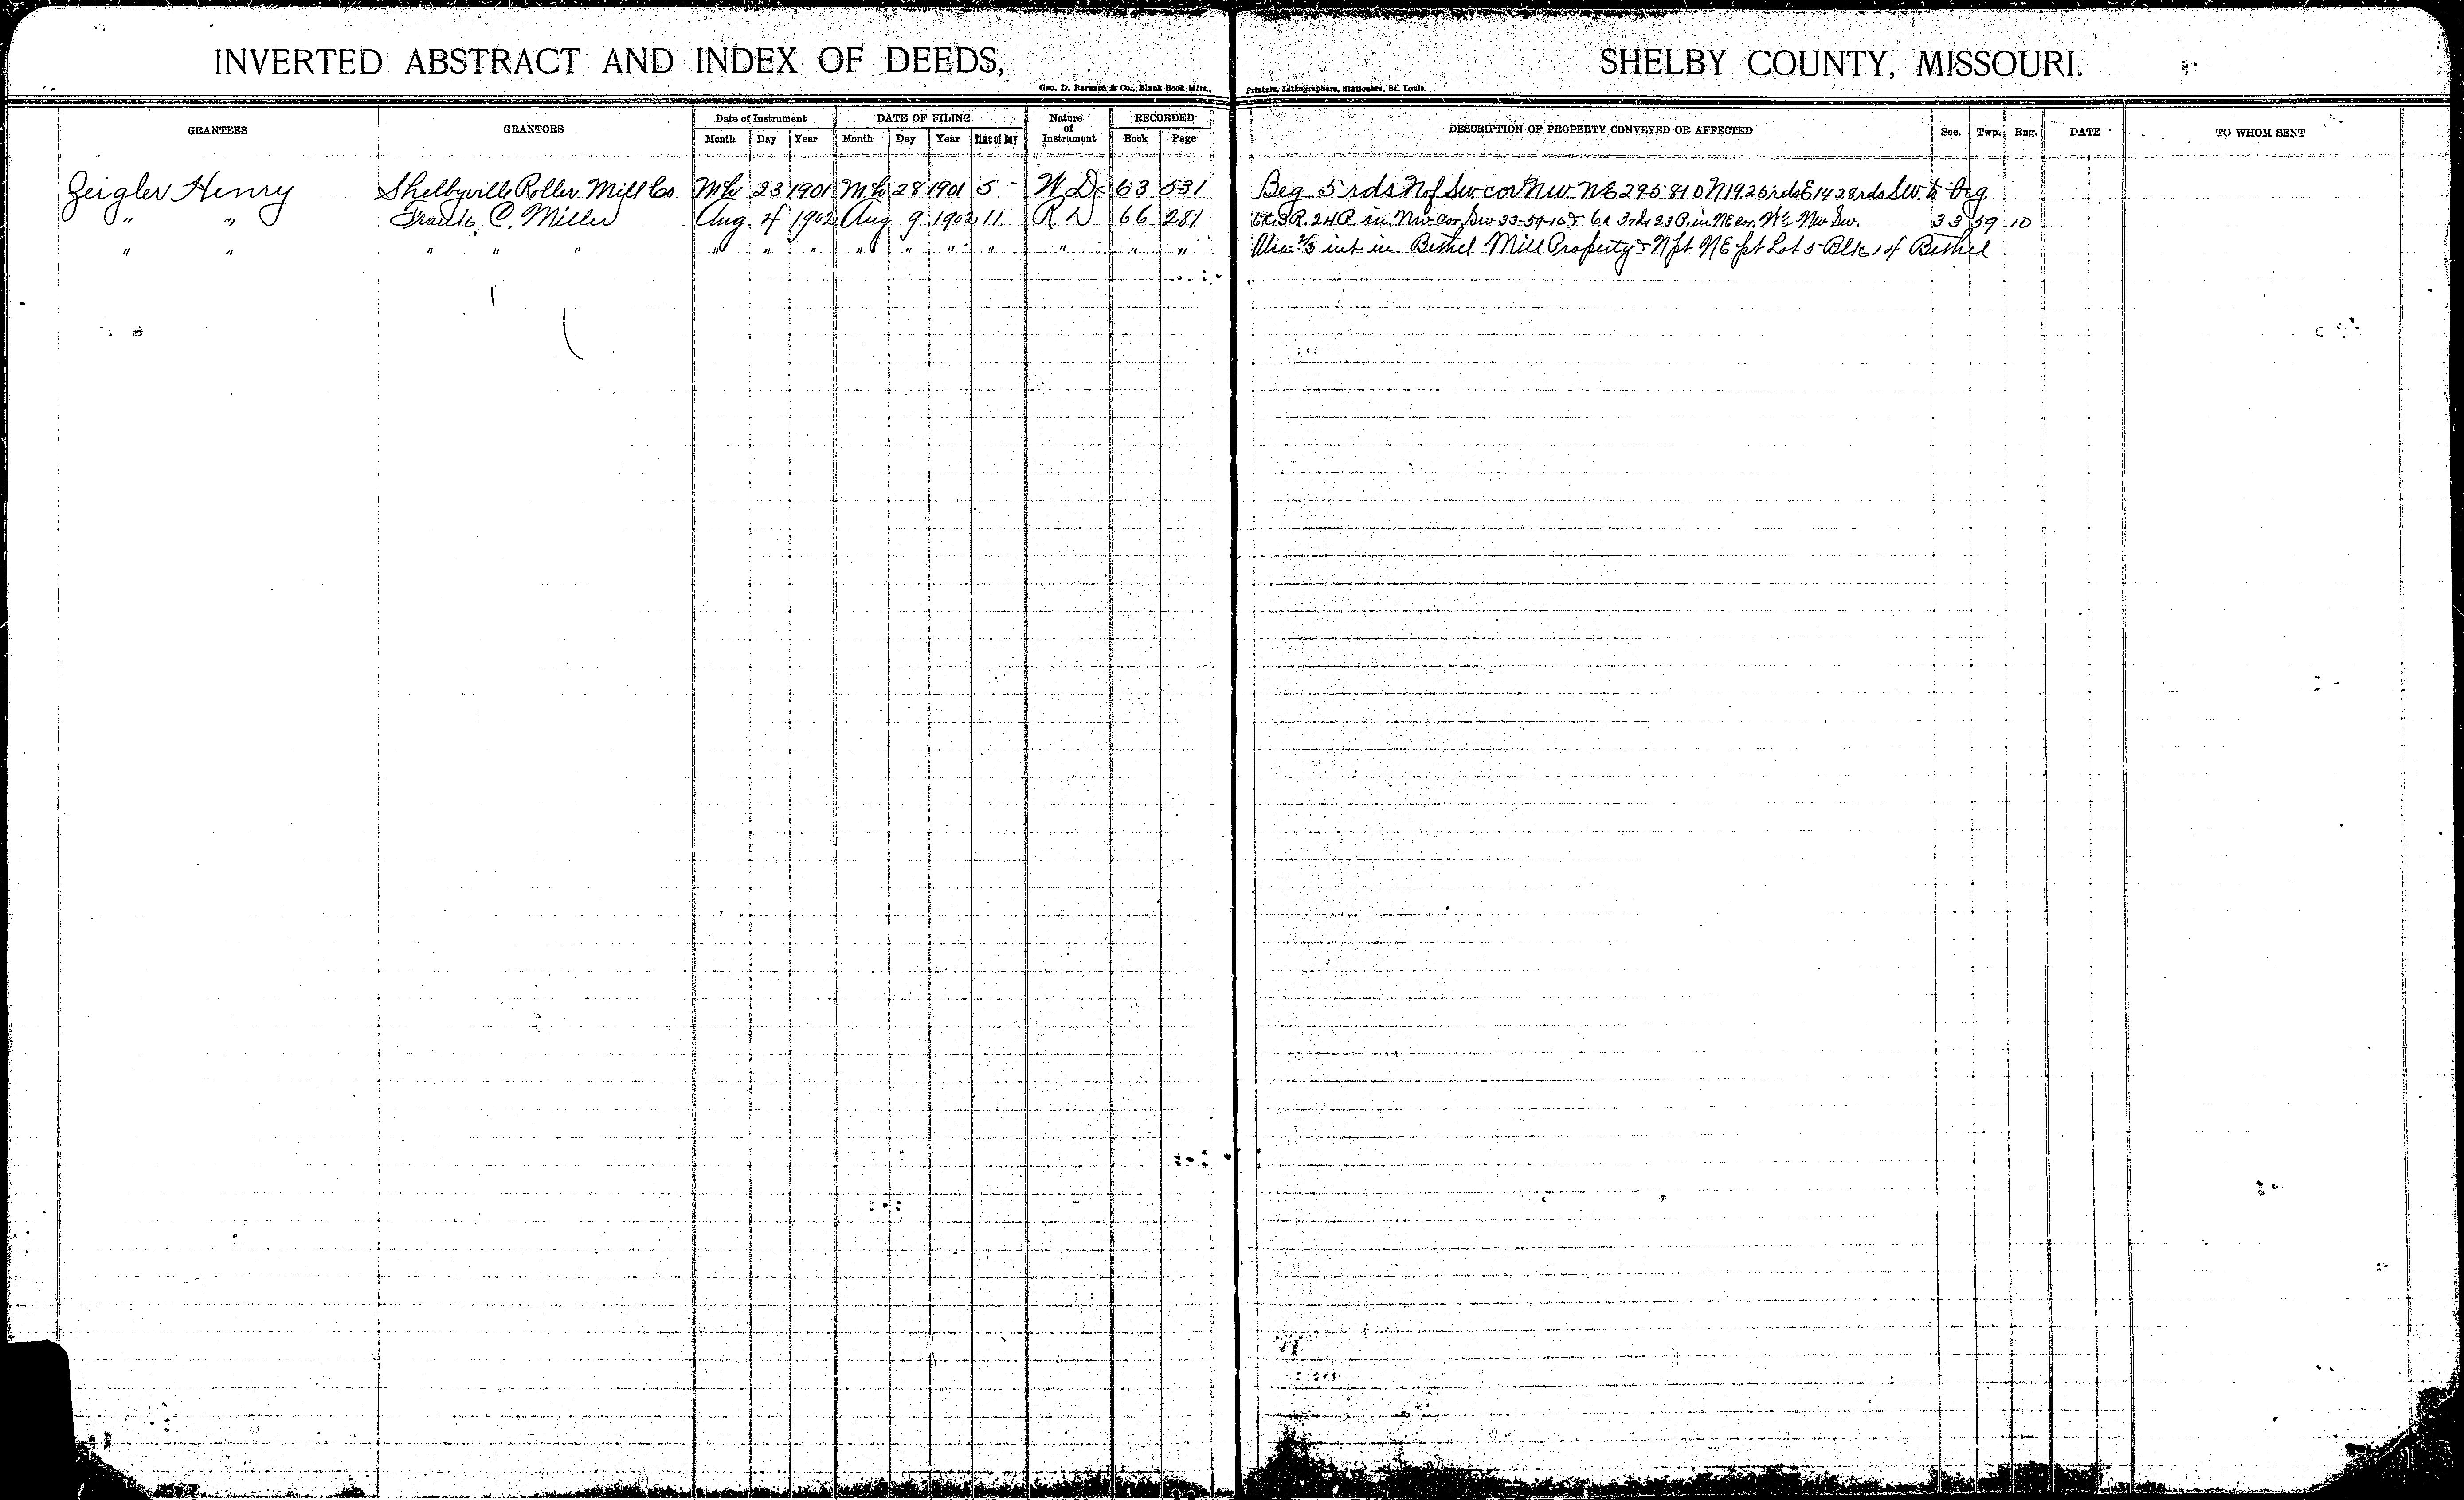 INVERTED ABSTRACT AND INDEX OF DEEDS, SHELBY COUNTY, MISSOURI.
Geo. D. Barnard & Co., Blank Book Mfrs., Printers, Lithographers, Stationers, St. Louis.
GRANTEES GRANTORS Date of Instrument DATE OF FILING Nature of Instrument RECORDED DESCRIPTION OF PROPERTY CONVEYED OR AFFECTED Sec. Twp. Rng. DATE TO WHOM SENT
Month Day Year Month Day Year Time of Day Book Page
Zeigler Henry Shelbyville Roller Mill Co Mh 23 1901 Mh 28 1901 5 - W D 63 531 Beg 5 rds N of Sw cor Nw NE 29 58 10 N 19.25 rds E 14 28 rds Sw to beg
" " Frank C. Miller Aug 4 1902 Aug 9 1902 11 R D 66 281 3R. 24 P. in Nw cor Sw 33-59-10 & 6a 3rds 23 P. in NE cor. W ½ Nw Sw. 33 59 10
" " " " " " " " " " " " " " " Also ⅓ int in Bethel Mill Property & N pt NE pt Lot 5 Blk 14 Bethel